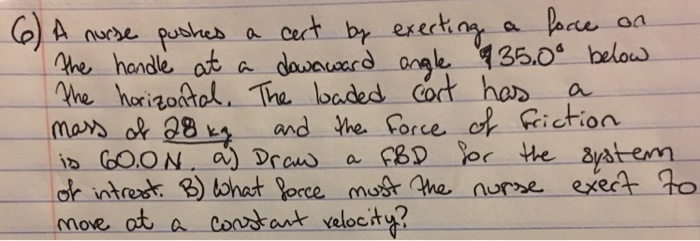 6) A nurse pushes a cart by exerting a force on
the handle at a downward angle 35.0° below
the horizontal. The loaded cart has a
mass of 28 kg and the force of friction
is 60.0 N. a) Draw a FBD for the system
of intrest. B) What force must the nurse exert to
move at a constant velocity?